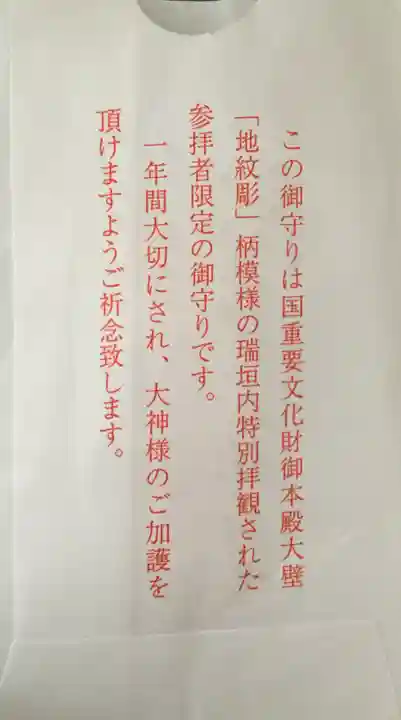 この御守りは国重要文化財御本殿大壁
「地紋彫」柄模様の瑞垣内特別拝観された
参拝者限定の御守りです。
一年間大切にされ、大神様のご加護を
頂けますようご祈念致します。